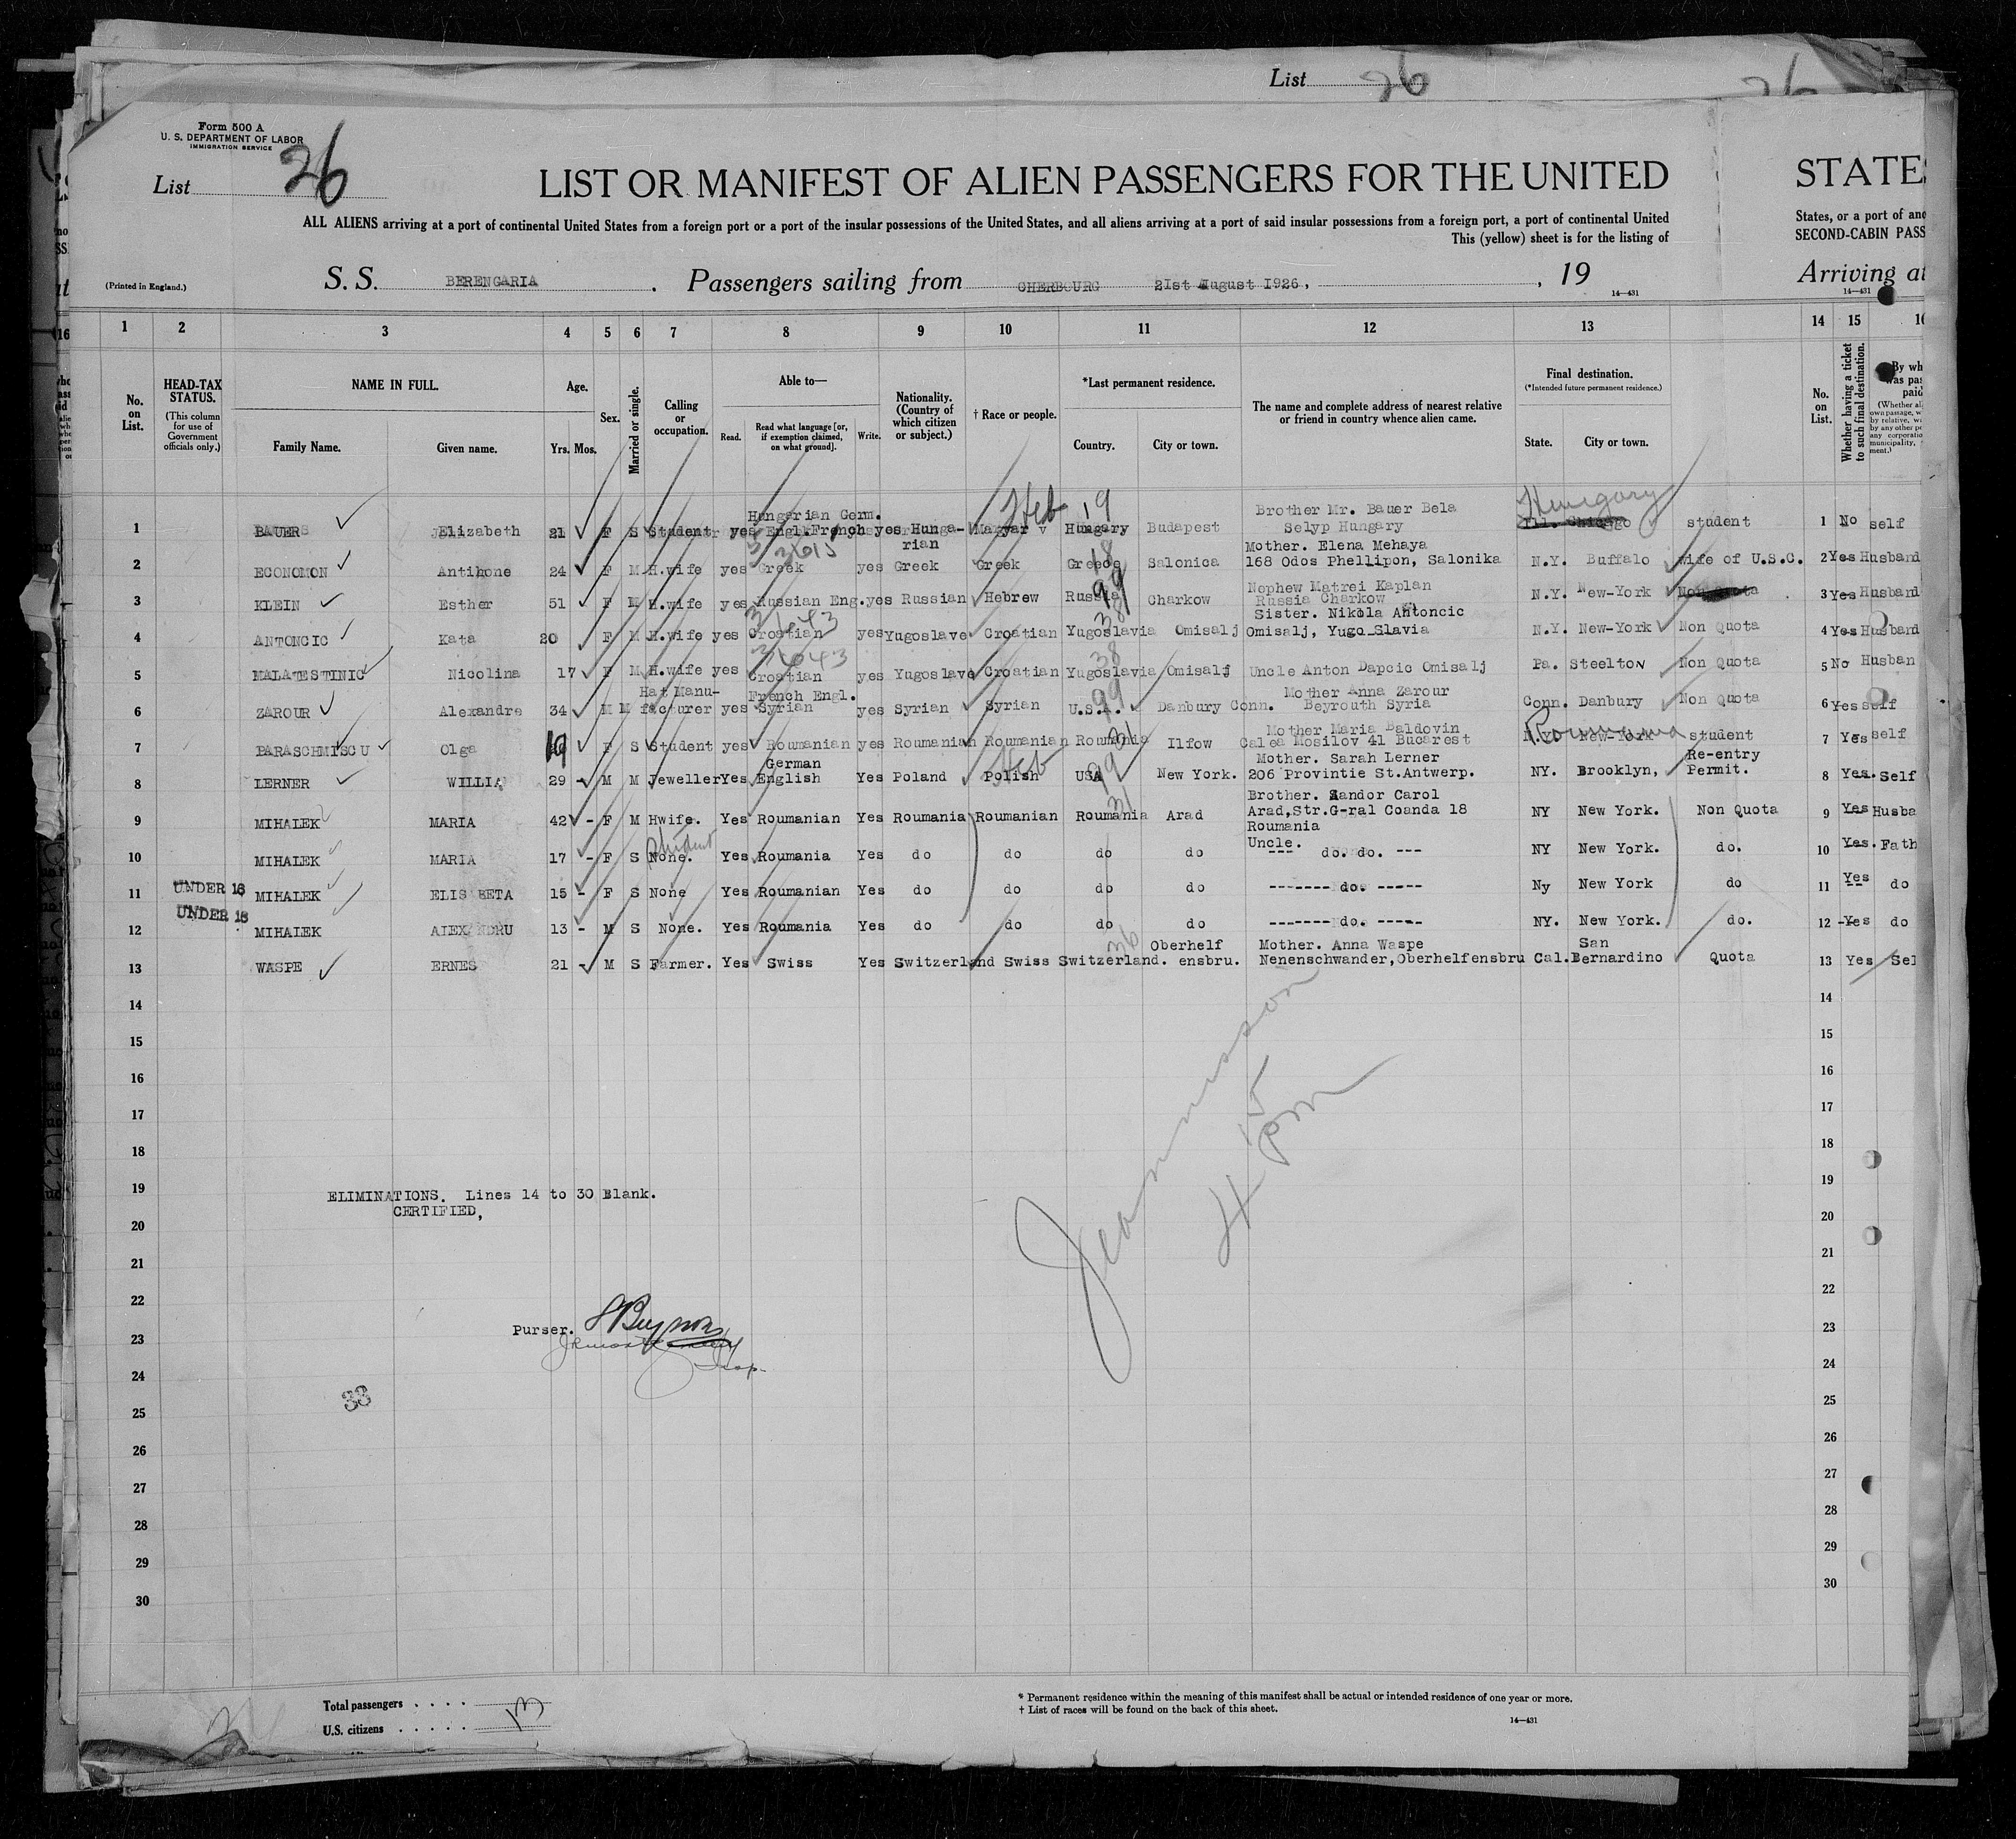 List 26
Form 500 A
U. S. DEPARTMENT OF LABOR
IMMIGRATION SERVICE
List 26
LIST OR MANIFEST OF ALIEN PASSENGERS FOR THE UNITED STATES
ALL ALIENS arriving at a port of continental United States from a foreign port or a port of the insular possessions of the United States, and all aliens arriving at a port of said insular possessions from a foreign port, a port of continental United States, or a port of
This (yellow) sheet is for the listing of SECOND-CABIN PASS
(Printed in England.) S. S. BERENGARIA . Passengers sailing from CHERBOURG 21st August 1926, , 19 Arriving at
14—431 14—431
1 2 3 4 5 6 7 8 9 10 11 12 13 14 15 16
No. on List.
HEAD-TAX STATUS.
(This column for use of Government officials only.)
NAME IN FULL.
Family Name. Given name.
Age.
Yrs. Mos.
Sex.
Married or single.
Calling or occupation.
Able to—
Read. Read what language [or, if exemption claimed, on what ground]. Write.
Nationality. (Country of which citizen or subject.)
† Race or people.
*Last permanent residence.
Country. City or town.
The name and complete address of nearest relative or friend in country whence alien came.
Final destination.
(*Intended future permanent residence.)
State. City or town.
No. on List.
Whether having a ticket to such final destination.
1 BAUER Elizabeth 21 F S Student yes Hungarian Germ. Engl. French yes Hunga-rian Magyar Heb Hungary 19 Budapest Brother Mr. Bauer Bela Selyp Hungary Ill. Chicago Hungary student 1 No self
2 ECONOMON Antihone 24 F M H.wife yes Greek yes Greek Greek Greece 18 Salonica Mother. Elena Mehaya 168 Odos Phellipon, Salonika N.Y. Buffalo wife of U.S.C. 2 Yes Husband
3 KLEIN Esther 51 F M H.wife yes Russian Eng. yes Russian Hebrew Russia 99 Charkow Nephew Matrei Kaplan Russia Charkow N.Y. New-York Non Quota 3 Yes Husband
4 ANTONCIC Kata 20 F M H.wife yes Croatian yes Yugoslave Croatian Yugoslavia 38 Omisalj Sister. Nikola Antoncic Omisalj, Yugo Slavia N.Y. New-York Non Quota 4 Yes Husband
5 MALATESTINIC Nicolina 17 F M H.wife yes Croatian yes Yugoslave Croatian Yugoslavia 38 Omisalj Uncle Anton Dapcic Omisalj Pa. Steelton Non Quota 5 No Husban
6 ZAROUR Alexandre 34 M M Hat Manu-facturer yes French Engl. Syrian yes Syrian Syrian U.S.A. 99 Danbury Conn. Mother Anna Zarour Beyrouth Syria Conn. Danbury Non Quota 6 Yes self
7 PARASCHMISCU Olga 19 F S Student yes Roumanian yes Roumanian Roumanian Roumania 31 Ilfow Mother Maria Baldovin Calea Mosilov 41 Bucarest N.Y. New-York Roumania student 7 Yes self
8 LERNER WILLIA 29 - M M Jeweller Yes German English Yes Poland Polish Heb USA 99 New York. Mother. Sarah Lerner 206 Provintie St.Antwerp. NY. Brooklyn, Re-entry Permit. 8 Yes. Self
9 MIHALEK MARIA 42 - F M Hwife. Yes Roumanian Yes Roumania Roumanian Roumania 31 Arad Brother. Sandor Carol Arad,Str.G-ral Coanda 18 Roumania NY New York. Non Quota 9 Yes Husba
10 MIHALEK MARIA 17 - F S None. Student Yes Roumania Yes do do do do Uncle. --- do. do. --- NY New York. do. 10 Yes. Fath
UNDER 16
11 MIHALEK ELISABETA 15 - F S None Yes Roumanian Yes do do do do ------- do. ----- Ny New York do 11 Yes do
UNDER 16
12 MIHALEK ALEXANDRU 13 - M S None. Yes Roumania Yes do do do do ------- do. ----- NY. New York. do. 12 -Yes do
13 WASPE ERNES 21 - M S Farmer. Yes Swiss Yes Switzerland Swiss Switzerland. 36 Oberhelf ensbru. Mother. Anna Waspe Nenenschwander,Oberhelfensbru Cal. San Bernardino Quota 13 Yes Sel
14 14
15 15
16 16
17 17
18 18
19 19
ELIMINATIONS. Lines 14 to 30 Blank.
CERTIFIED,
20 20
21 21
22 22
Purser.
23 23
24 24
25 25
33
26 26
27 27
28 28
29 29
30 30
4 15 pm
Total passengers . . . . 13
U.S. citizens . . . . .
* Permanent residence within the meaning of this manifest shall be actual or intended residence of one year or more.
† List of races will be found on the back of this sheet.
14—431